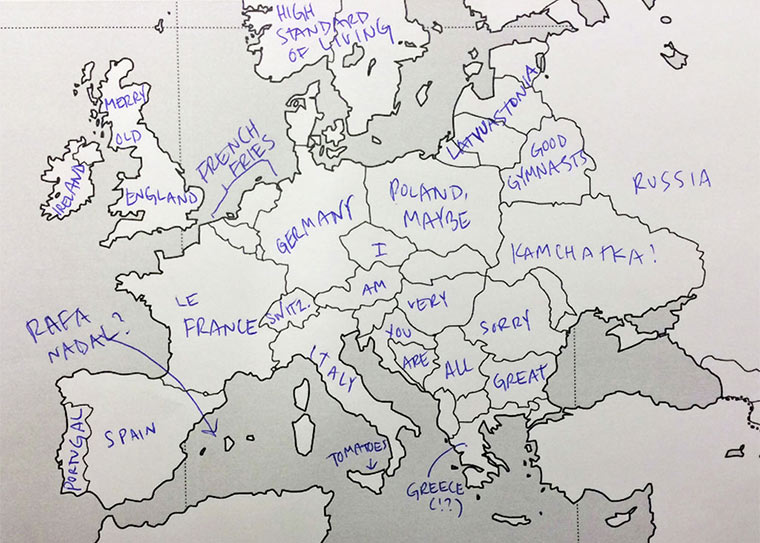 HIGH
STANDARD
OF LIVING
MERRY
OLD
ENGLAND
IRELAND
FRENCH
FRIES
LATVUASTONIA
GOOD
GYMNASTS
RUSSIA
GERMANY
POLAND,
MAYBE
KAMCHATKA!
I
AM
VERY
SORRY
YOU
ARE
ALL
GREAT
LE
FRANCE
SWITZ.
ITALY
RAFA
NADAL?
PORTUGAL
SPAIN
TOMATOES
GREECE
(!?)